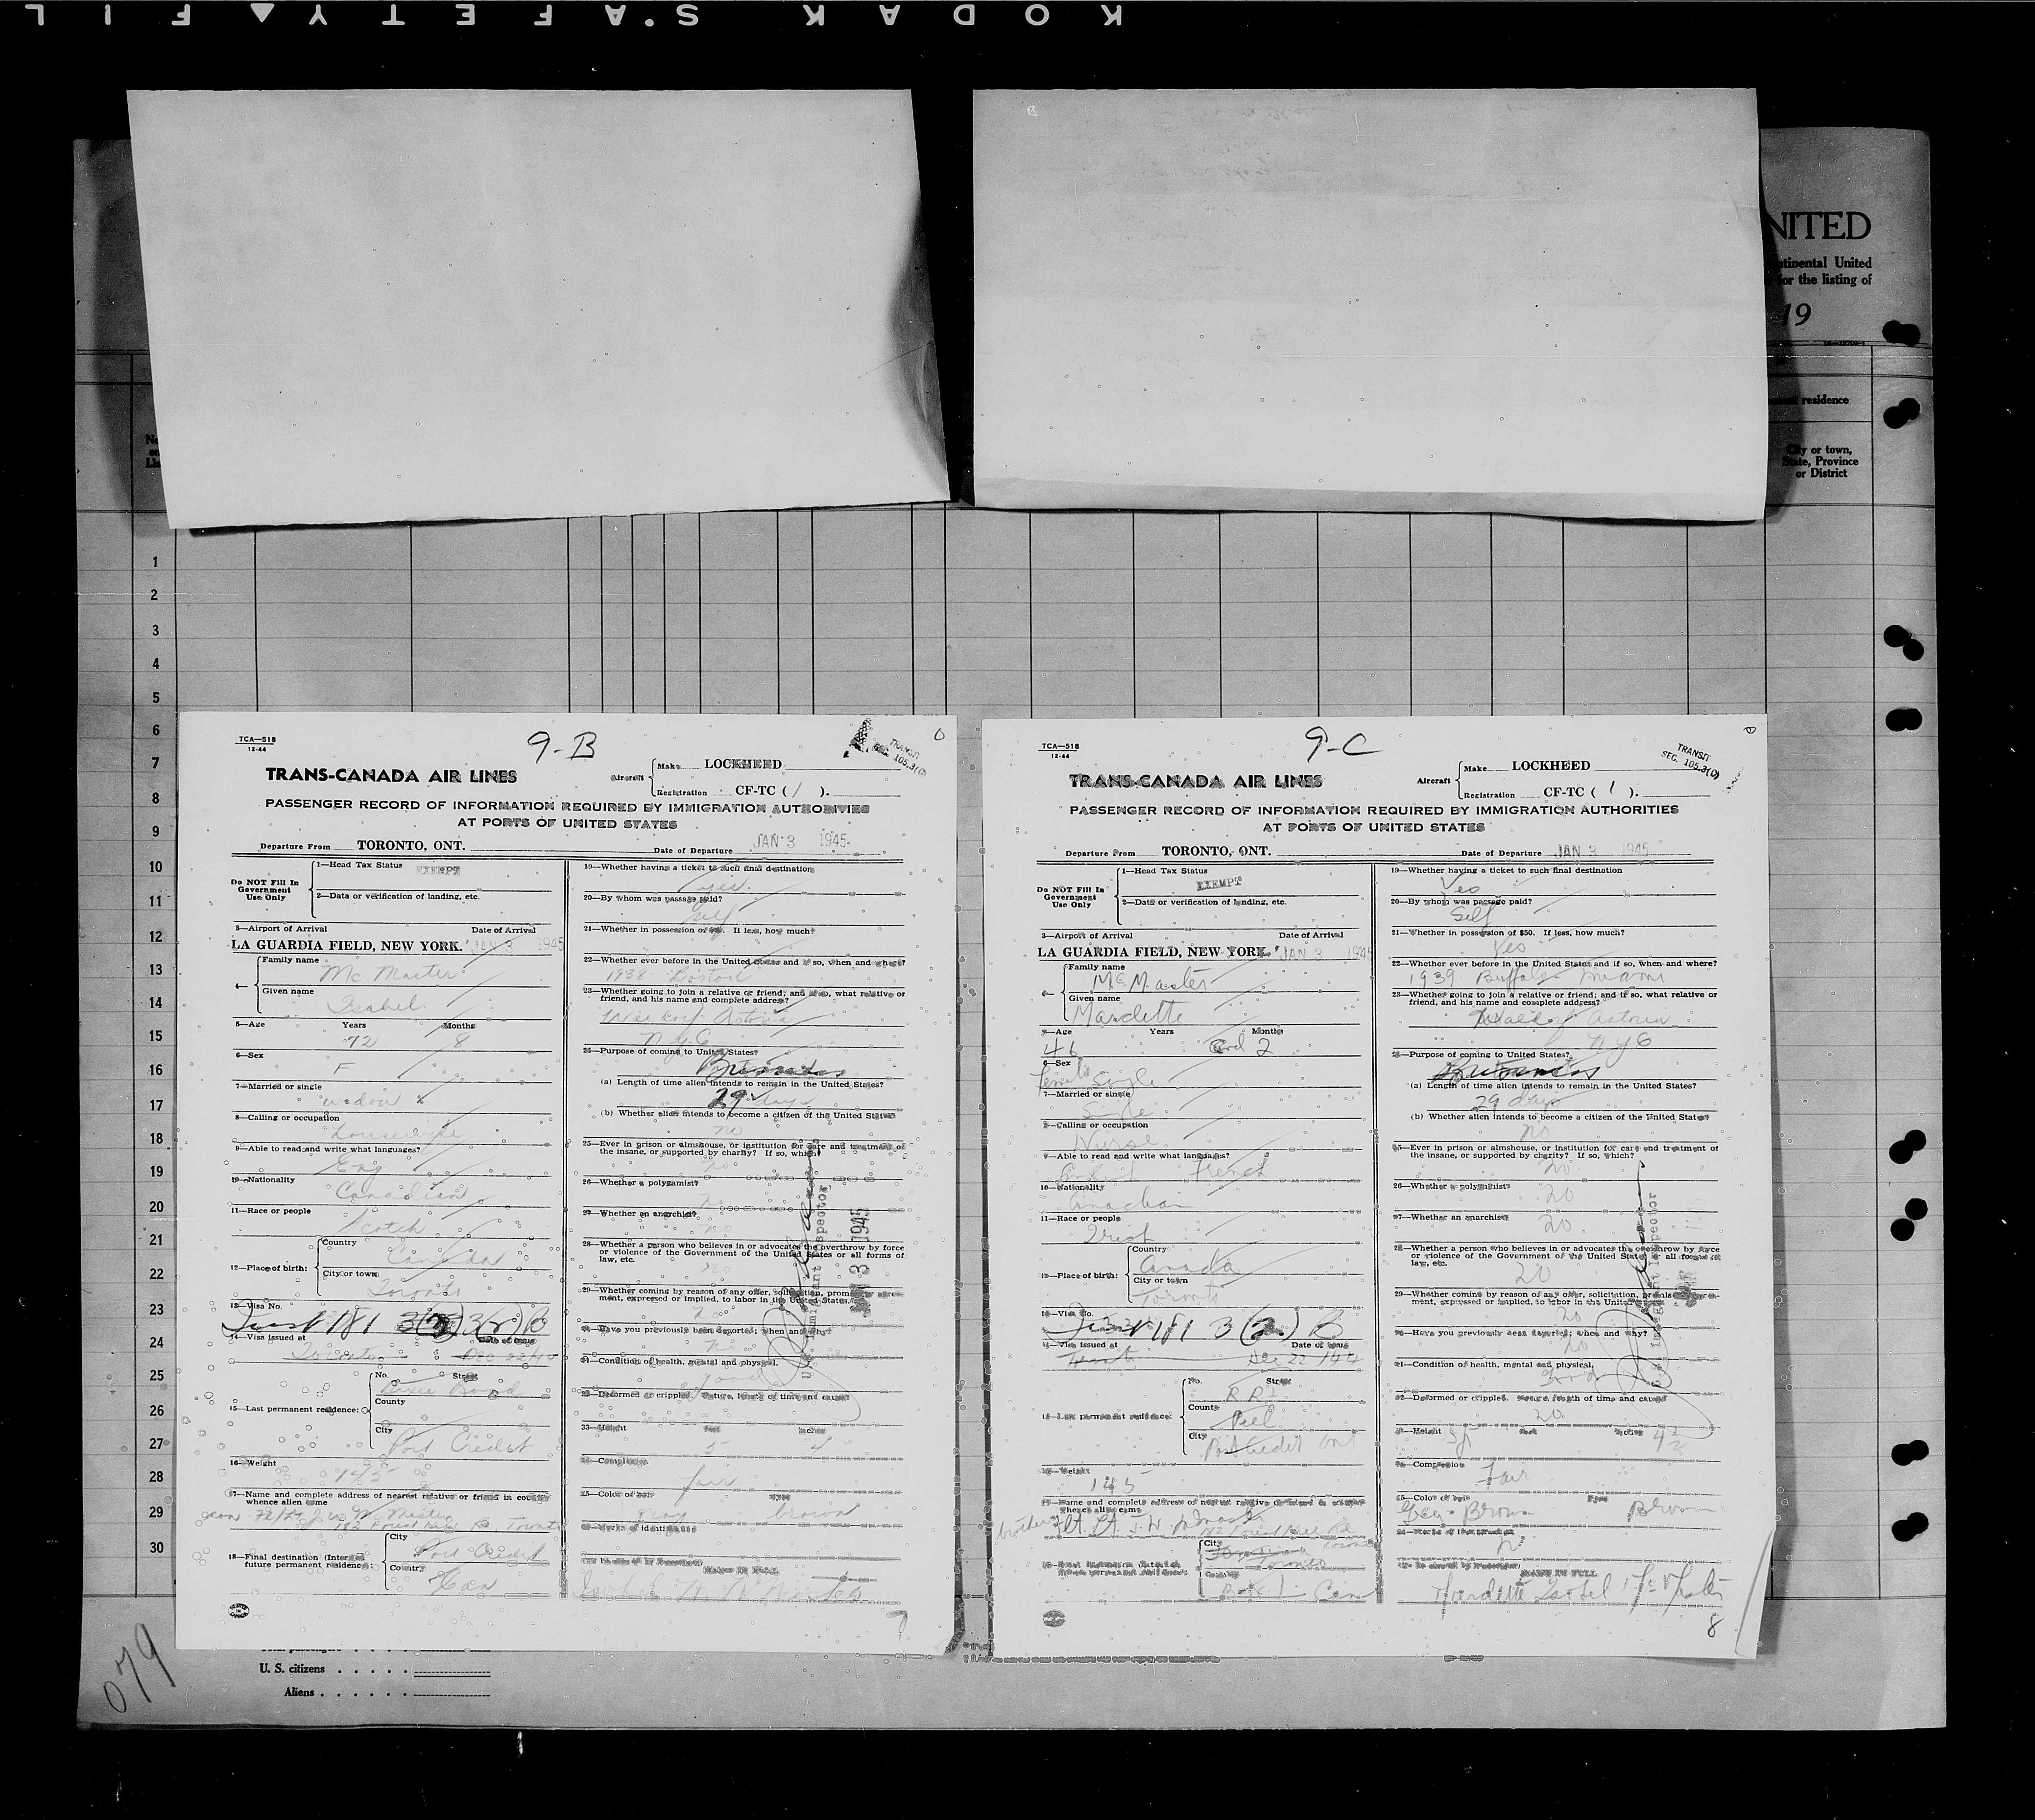 KODAK S.AFETY FIL
NITED
ntinental United
for the listing of
19
residence
City or town,
State, Province
or District
1
2
3
4
5
6
7
8
9
10
11
12
13
14
15
16
17
18
19
20
21
22
23
24
25
26
27
28
29
30
TCA—518
12-44
9-B
TRANSIT
SEC. 105.3(0)
TRANS-CANADA AIR LINES
Aircraft
Make LOCKHEED
Registration CF-TC ( 1 ).
PASSENGER RECORD OF INFORMATION REQUIRED BY IMMIGRATION AUTHORITIES
AT PORTS OF UNITED STATES
Departure From TORONTO, ONT. Date of Departure JAN 3 1945
Do NOT Fill In
Government
Use Only
1—Head Tax Status
EXEMPT
2—Data or verification of landing, etc.
3—Airport of Arrival Date of Arrival
LA GUARDIA FIELD, NEW YORK. JAN 3 1945
4—
Family name
Mc Master
Given name
Isabel
5—Age Years Months
72 8
6—Sex
F
7—Married or single
widow
8—Calling or occupation
housewife
9—Able to read and write what languages?
Eng
10—Nationality
Canadian
11—Race or people
Scotch
12—Place of birth:
Country
Canada
City or town
Toronto
13—Visa No.
181 3(2) B
14—Visa issued at Date of issue
Toronto Dec 22/44
15—Last permanent residence:
No. Street
Dixie Road
County
City
Port Credit
16—Weight
145
17—Name and complete address of nearest relative or friend in country
whence alien came
J W McMaster
182 Forest Hill Rd Toronto
18—Final destination (Intended
future permanent residence):
City
Port Credit
Country
Can
19—Whether having a ticket to such final destination
yes
20—By whom was passage paid?
self
21—Whether in possession of $50. If less, how much?
22—Whether ever before in the United States and if so, when and where?
1938 Boston
23—Whether going to join a relative or friend; and if so, what relative or
friend, and his name and complete address?
Waldorf Astoria
N.Y.C
24—Purpose of coming to United States?
Business
(a) Length of time alien intends to remain in the United States?
29 days
(b) Whether alien intends to become a citizen of the United States
no
25—Ever in prison or almshouse, or institution for care and treatment of
the insane, or supported by charity? If so, which?
no
26—Whether a polygamist?
no
27—Whether an anarchist?
no
28—Whether a person who believes in or advocates the overthrow by force
or violence of the Government of the United States or all forms of
law, etc.
no
29—Whether coming by reason of any offer, solicitation, promise or agree-
ment, expressed or implied, to labor in the United States.
no
30—Have you previously been deported; when and why?
no
31—Condition of health, mental and physical.
good
32—Deformed or crippled. Nature, length of time and cause?
33—Height Feet Inches
5 4
34—Complexion
fair
35—Color of hair Eyes
Gray brown
36—Marks of identification
NAME IN FULL
JAN 3 1945
U.S. Immigrant Inspector
7
TCA—518
12-44
9-C
TRANSIT
SEC. 105.3(0)
TRANS-CANADA AIR LINES
Aircraft
Make LOCKHEED
Registration CF-TC ( 1 ).
PASSENGER RECORD OF INFORMATION REQUIRED BY IMMIGRATION AUTHORITIES
AT PORTS OF UNITED STATES
Departure From TORONTO, ONT. Date of Departure JAN 3 1945
Do NOT Fill In
Government
Use Only
1—Head Tax Status
EXEMPT
2—Data or verification of landing, etc.
3—Airport of Arrival Date of Arrival
LA GUARDIA FIELD, NEW YORK. JAN 3 1945
4—
Family name
McMaster
Given name
Mardette
5—Age Years Months
46 and 2
6—Sex
Female Single
7—Married or single
Single
8—Calling or occupation
Nurse
9—Able to read and write what languages?
English French
10—Nationality
Canadian
11—Race or people
Irish
12—Place of birth:
Country
Canada
City or town
Toronto
13—Visa No.
181 3(2) B
14—Visa issued at Date of issue
Dec 22/44
15—Last permanent residence:
No. Street
R R 1
County
Peel
City
Port Credit Ont
16—Weight
145
17—Name and complete address of nearest relative or friend in country
whence alien came
brother Flt. Lt. J. W. McMaster
182 Forest Hill Rd
Toronto
City
Toronto
Country
Can
19—Whether having a ticket to such final destination
Yes
20—By whom was passage paid?
Self
21—Whether in possession of $50. If less, how much?
Yes
22—Whether ever before in the United States and if so, when and where?
1939 Buffalo Miami
23—Whether going to join a relative or friend; and if so, what relative or
friend, and his name and complete address?
Waldorf Astoria
NYC
24—Purpose of coming to United States?
Business
(a) Length of time alien intends to remain in the United States?
29 days
(b) Whether alien intends to become a citizen of the United States
no
25—Ever in prison or almshouse, or institution for care and treatment of
the insane, or supported by charity? If so, which?
no
26—Whether a polygamist?
no
27—Whether an anarchist?
no
28—Whether a person who believes in or advocates the overthrow by force
or violence of the Government of the United States or all forms of
law, etc.
no
29—Whether coming by reason of any offer, solicitation, promise or agree-
ment, expressed or implied, to labor in the United States.
no
30—Have you previously been deported; when and why?
no
31—Condition of health, mental and physical.
Good
32—Deformed or crippled. Nature, length of time and cause?
no
33—Height Feet Inches
5 4½
34—Complexion
Fair
35—Color of hair Eyes
Grey-Brown Brown
NAME IN FULL
Mardette Isobel McMaster
8
U. S. citizens
Aliens
079